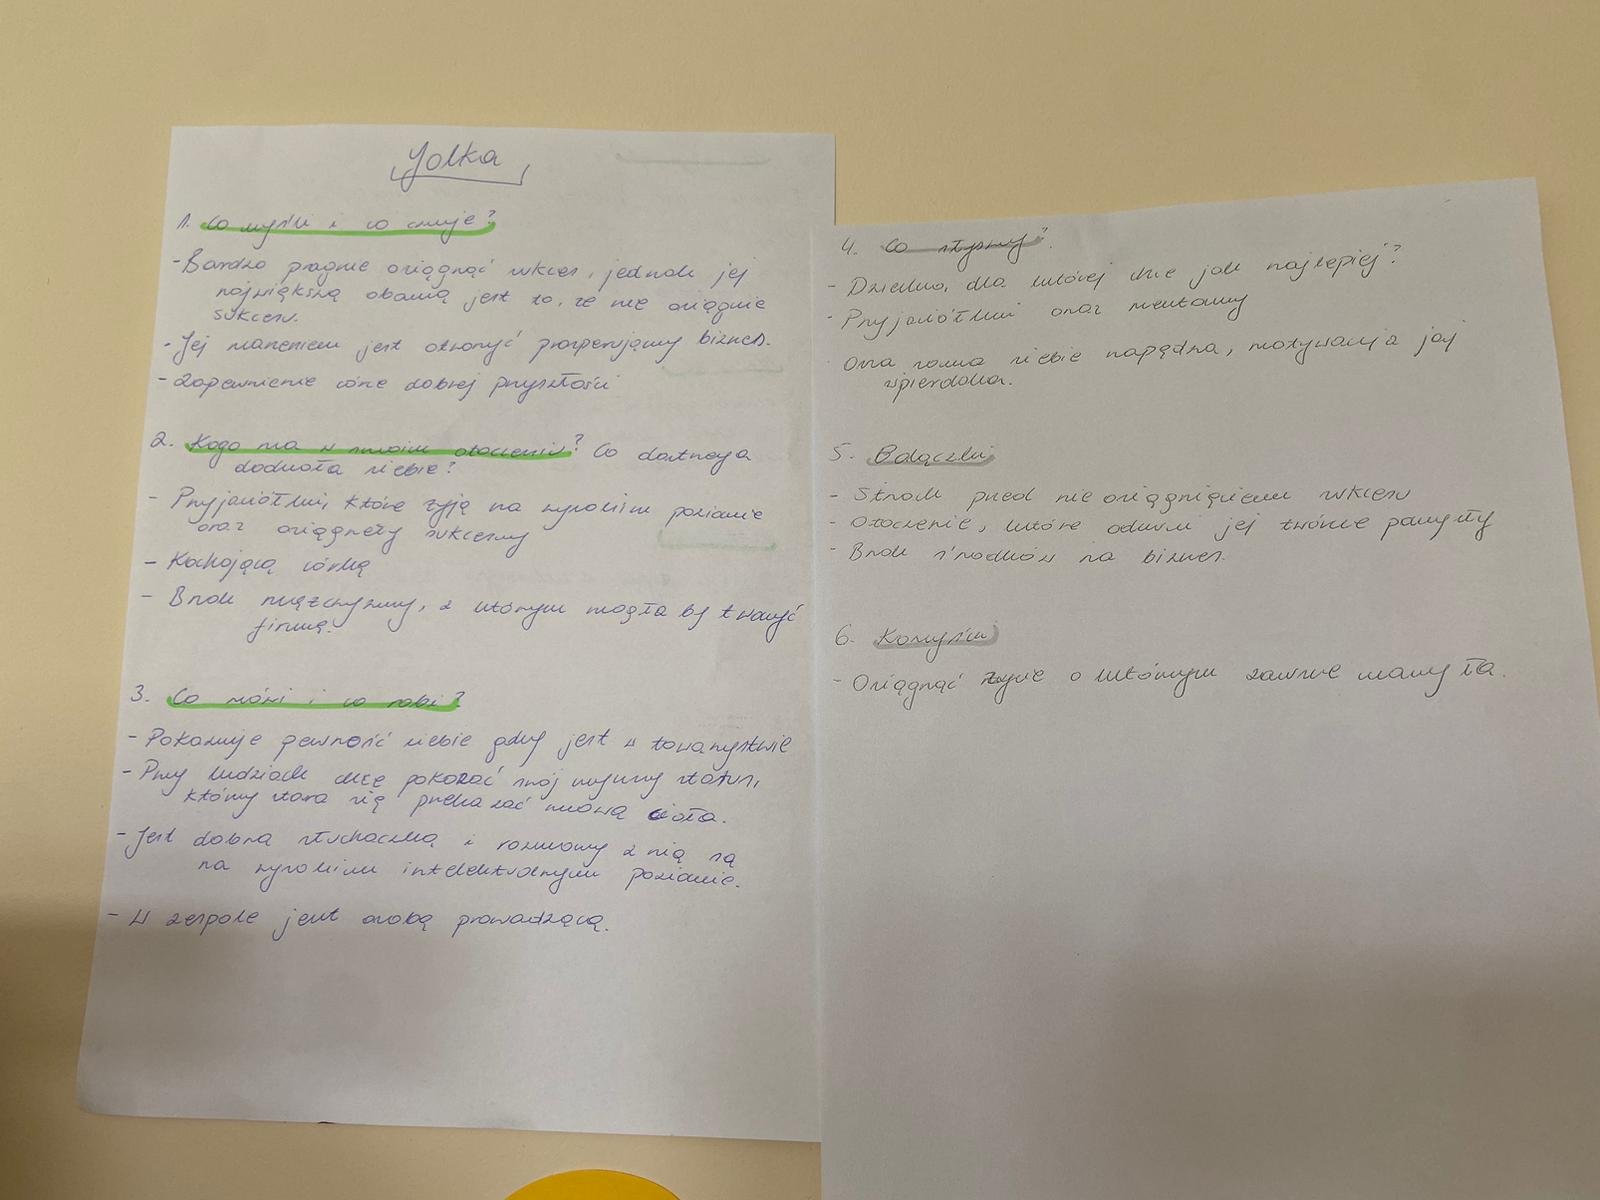 Jolka
1. Co myśli i co czuje?
- Bardzo pragnie osiągnąć sukces, jednak jej
największą obawą jest to, że nie osiągnie
sukcesu.
- Jej marzeniem jest otworzyć prosperujący biznes.
- Zapewnienie córce dobrej przyszłości
2. Kogo ma w swoim otoczeniu? Co dostrzega
dookoła siebie?
- Przyjaciółki, które żyją na wysokim poziomie
oraz osiągnęły sukcesy
- Kochającą córkę
- Brak mężczyzny, z którym mogła by tworzyć
firmę.
3. Co mówi i co robi?
- Pokazuje pewność siebie gdy jest w towarzystwie
- Przy ludziach chce pokazać swój wyższy status,
który stara się przekazać mową ciała.
- Jest dobrą słuchaczką i rozmowy z nią są
na wysokim intelektualnym poziomie.
- W zespole jest osobą prowadzącą.
4. Co słyszy?
- Dziecko, dla której chce jak najlepiej?
- Przyjaciółki oraz mentorzy
- Ona sama siebie napędza, motywacja jej
5. Bolączki
- Strach przed nie osiągnięciem sukcesu
- Otoczenie, które odrzuci jej twórcze pomysły
- Brak środków na biznes.
6. Korzyści
- Osiągnąć życie o którym zawsze marzyła.